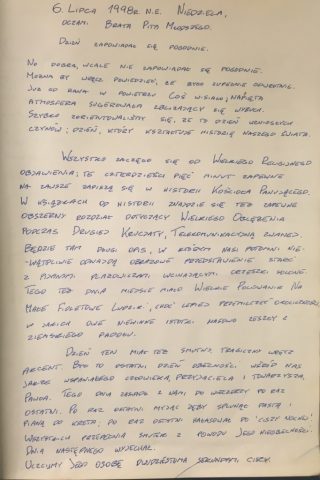 6. Lipca 1998r. n.e. Niedziela,
oczami Brata Pita Młodszego.
Dzień zapowiadał się pogodnie.
No dobra, wcale nie zapowiadał się pogodnie.
Można by wręcz powiedzieć, że było zupełnie odwrotnie.
Już od rana w powietrzu coś wisiało; napięta
atmosfera sugerowała zbliżający się wybuch.
Szybko zorientowaliśmy się, że to dzień wzniosłych
czynów; dzień, który kształtuje historię naszego świata.
Wszystko zaczęło się od Wielkiego Religijnego
Objawienia; te czterdzieści pięć minut zapewne
na zawsze zapiszą się w historii Kościoła Panującego.
W książkach od historii znajdzie się też zapewne
obszerny rozdział dotyczący Wielkiego Oblężenia
podczas Drugiej Krucjaty, Telekomunikacyjną zwanej.
Będzie tam długi opis, w którym nasi potomni nie-
-wątpliwie odnajdą obrazowe przedstawienie starć
z pijanymi plażowiczami, wcinającymi orzeszki solone.
Tego też dnia miejsce miało Wielkie Polowanie Na
Małe Fioletowe Ludziki, choć lepiej przemilczeć okoliczności
w jakich owe niewinne istotki naszego zeszły z
ziemskiego padołu.
Dzień ten miał też smutny, tragiczny wręcz
akcent. Był to ostatni dzień obecności wśród nas
jakże wspaniałego człowieka, przyjaciela i towarzysza,
Pawła. Tego dnia zasiadł z nami do wieczerzy po raz
ostatni. Po raz ostatni myjąc zęby spluwał pastą i
pianą do kreta; po raz ostatni hałasował po "ciszy nocnej".
Wszystkich przepełnia smutek z powodu Jego nieobecności.
Dnia następnego wyjechał.
Uczcijmy Jego osobę dwudziestoma sekundami ciszy.